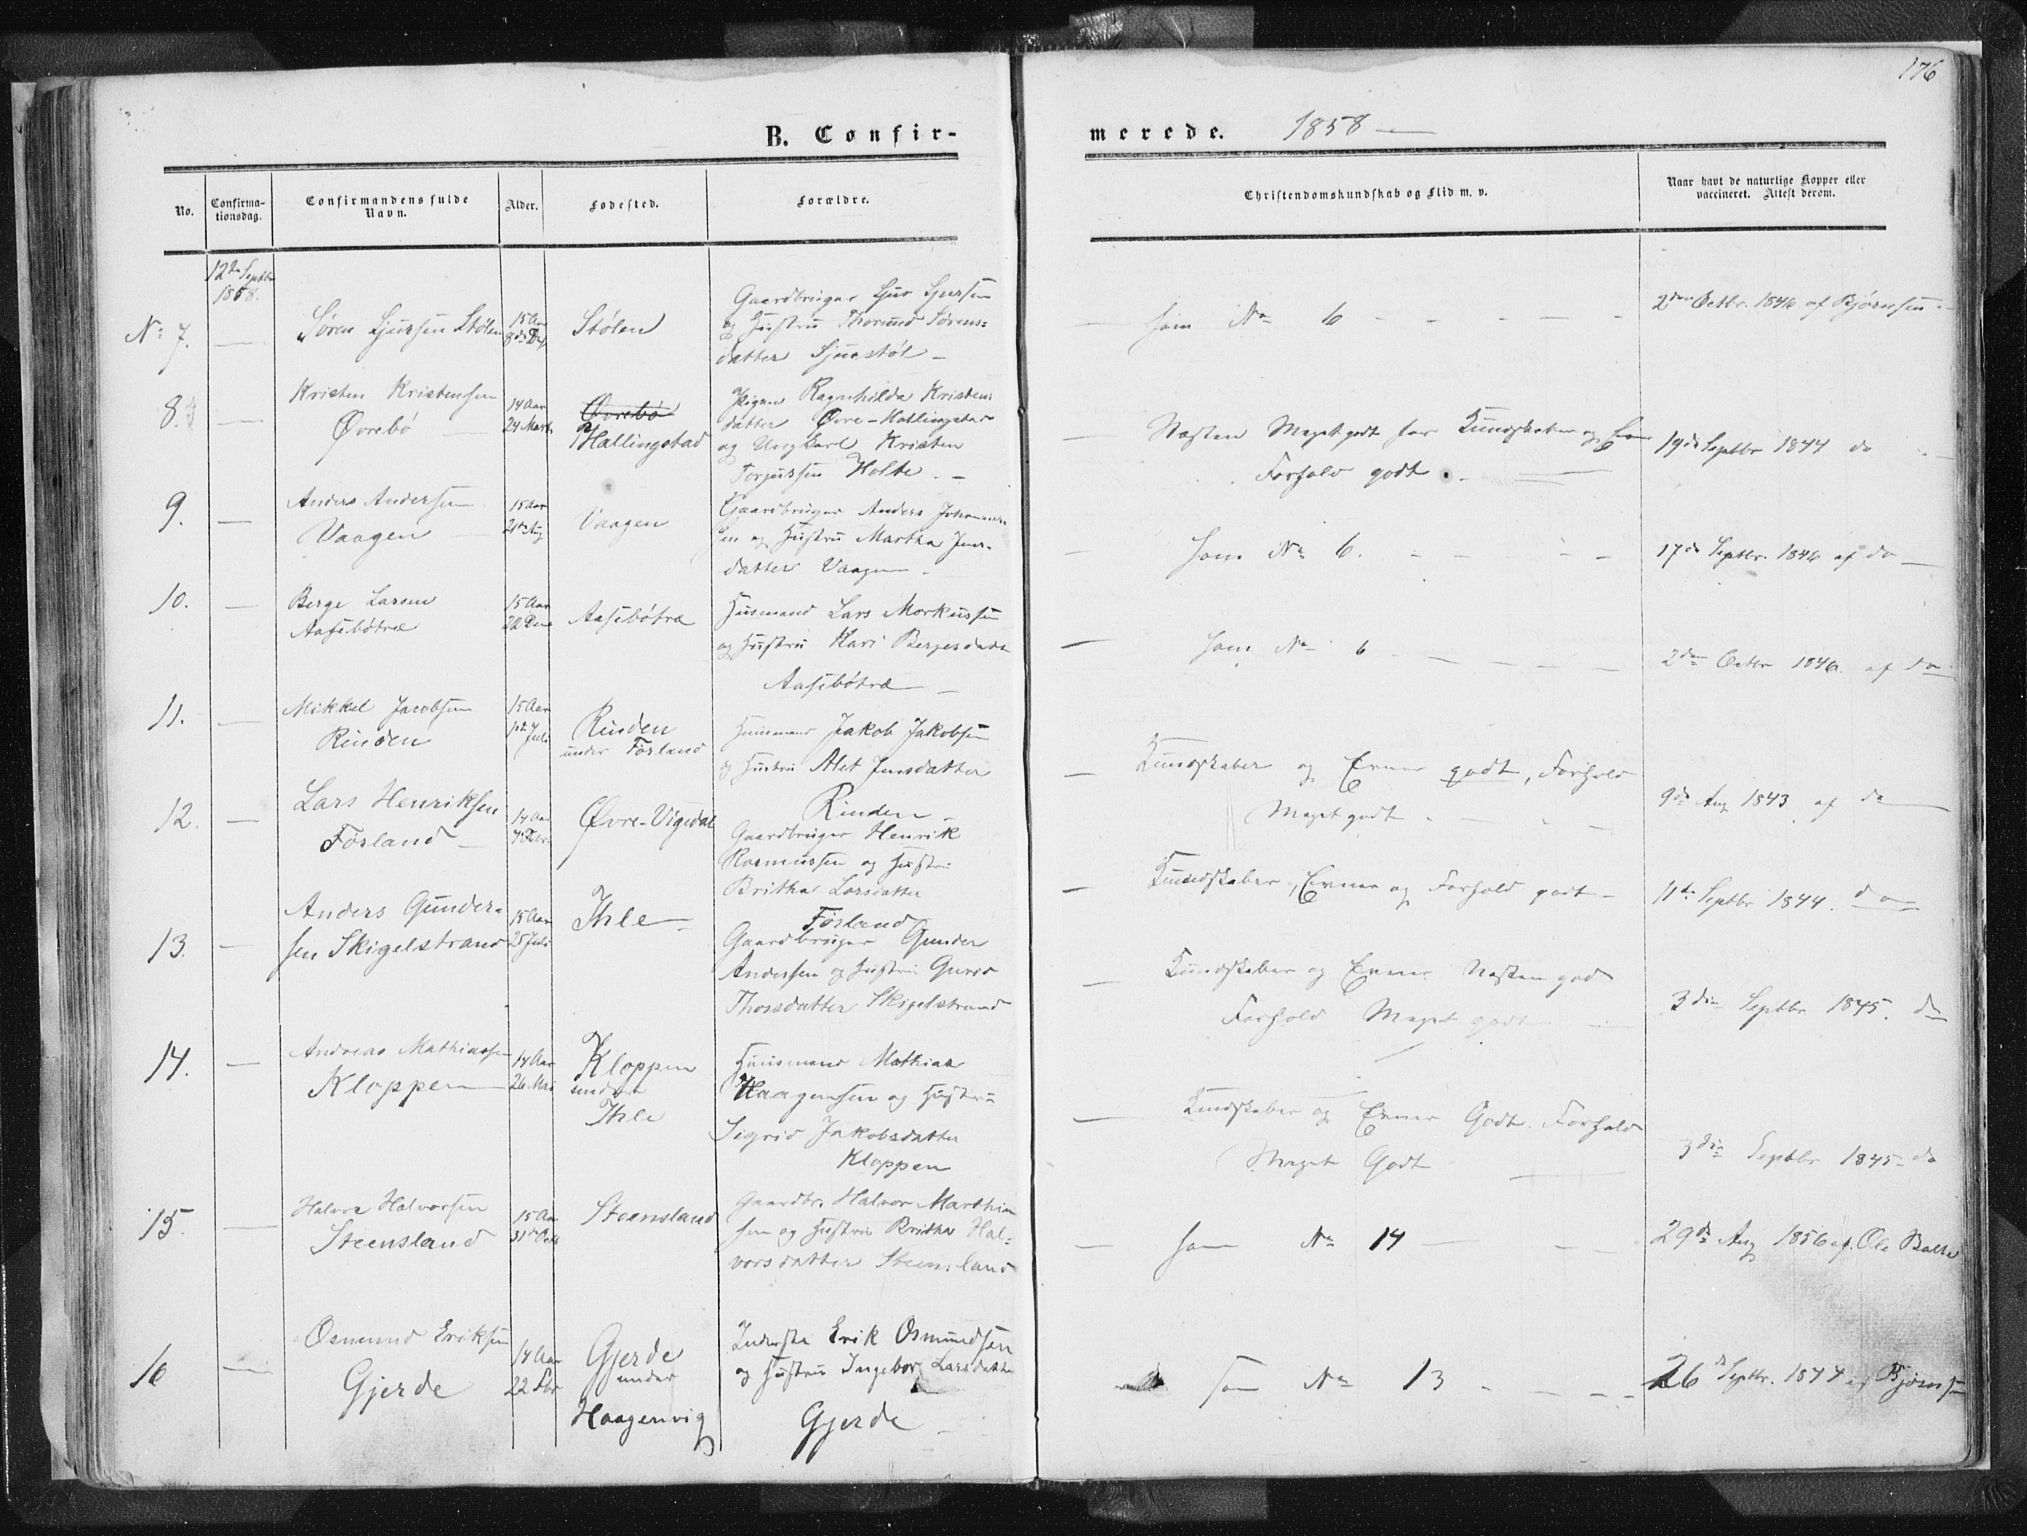 176
B. Confir-
merede. 1858
No.
Confirma-
tionsdag.
Confirmandens fulde
Navn.
Alder.
Fødested.
Forældre.
Christendomskundskab og Flid m. v.
Naar havt de naturlige Kopper eller
vaccineret. Attest derom.
12te Septbr
1858.
No 7.
Søren Sjursen Stølen
15 Aar
Stølen
Gaardbruger Sjur Sjursen
og Hustru Thorund Sørens-
datter Sjurstøl
som No 6
2den Octbr. 1846 af Bjørnsen
8.
Kristen Kristensen
Øvrebø
14 Aar
24 Marts
Øvrebø
Hallingstad
Pigen Ragnhilda Kristens
datter Øvre-Hallingstad
og Ungkarl Kristen
Torjussen Holte
Næsten Meget godt for Kundskaber og Evner
Forhold godt.
19de Septbr 1844 do
9.
Anders Andersen
Vaagen
15 Aar
21de Aug
Vaagen
Gaardbruger Anders Johannes-
sen og Hustru Martha Jens-
datter Vaagen
som No 6.
17de Septbr. 1846 af do
10.
Berge Larsen
Aasebøtræ
15 Aar
22 Dec
Aasebøtræ
Husmand Lars Morkussen
og Hustru Kari Bergesdatt
Aasebøtræ
som No 6
2den Octbr 1846. af do
11.
Mikkel Jacobsen
Rinden
15 Aar
1ste Juli
Rinden
under Førland
Huusmand Jakob Jakobsen
og Hustru Alet Jensdatter
Rinden
Kundskaber og Evner godt, Forhold
Meget godt
9de Aug 1843 af do
12.
Lars Henriksen
Førland
14 Aar
4 Febr.
Øvre-Vigedal
Gaardbruger Henrik
Rasmussen og Hustru
Britha Larsdatter
Førland
Kundskaber, Evner og Forhold godt
11te Septbr 1844. do
13.
Anders Gunder-
sen Skigelstrand
15 Aar
25 Juli
Ihle
Gaardbruger Gunder
Andersen og Hustru Gurid
Thorsdatter Skigelstrand
Kundskaber og Evner Næsten god
Forhold Meget godt
3die Septbr 1845. do
14.
Andreas Mathiassen
Kloppen
14 Aar
26 Mai
Kloppen
under
Ihle
Huusmand Mathias
Haagensen og Hustru
Sigrid Jakobsdatter
Kloppen
Kundskaber og Evner Godt. Forhold
Meget Godt
3die Septbr 1845 do
15.
Halvor Halvorsen
Steensland
15 Aar
31te Octb
Steensland
Gaardbr. Halvor Marthin
sen og Hustru Britha Hal-
vorsdatter Steensland
som No 14
29de Aug 1856 af. Ole Bakke
16
Osmund Eriksen
Gjerde
14 Aar
Gjerde
under
Haagenvig
Inderste Erik Osmundsen
og Hustru Ingeborg Larsdatter
Gjerde
som No 13
26de Septbr. 1844 af Bjørnsen